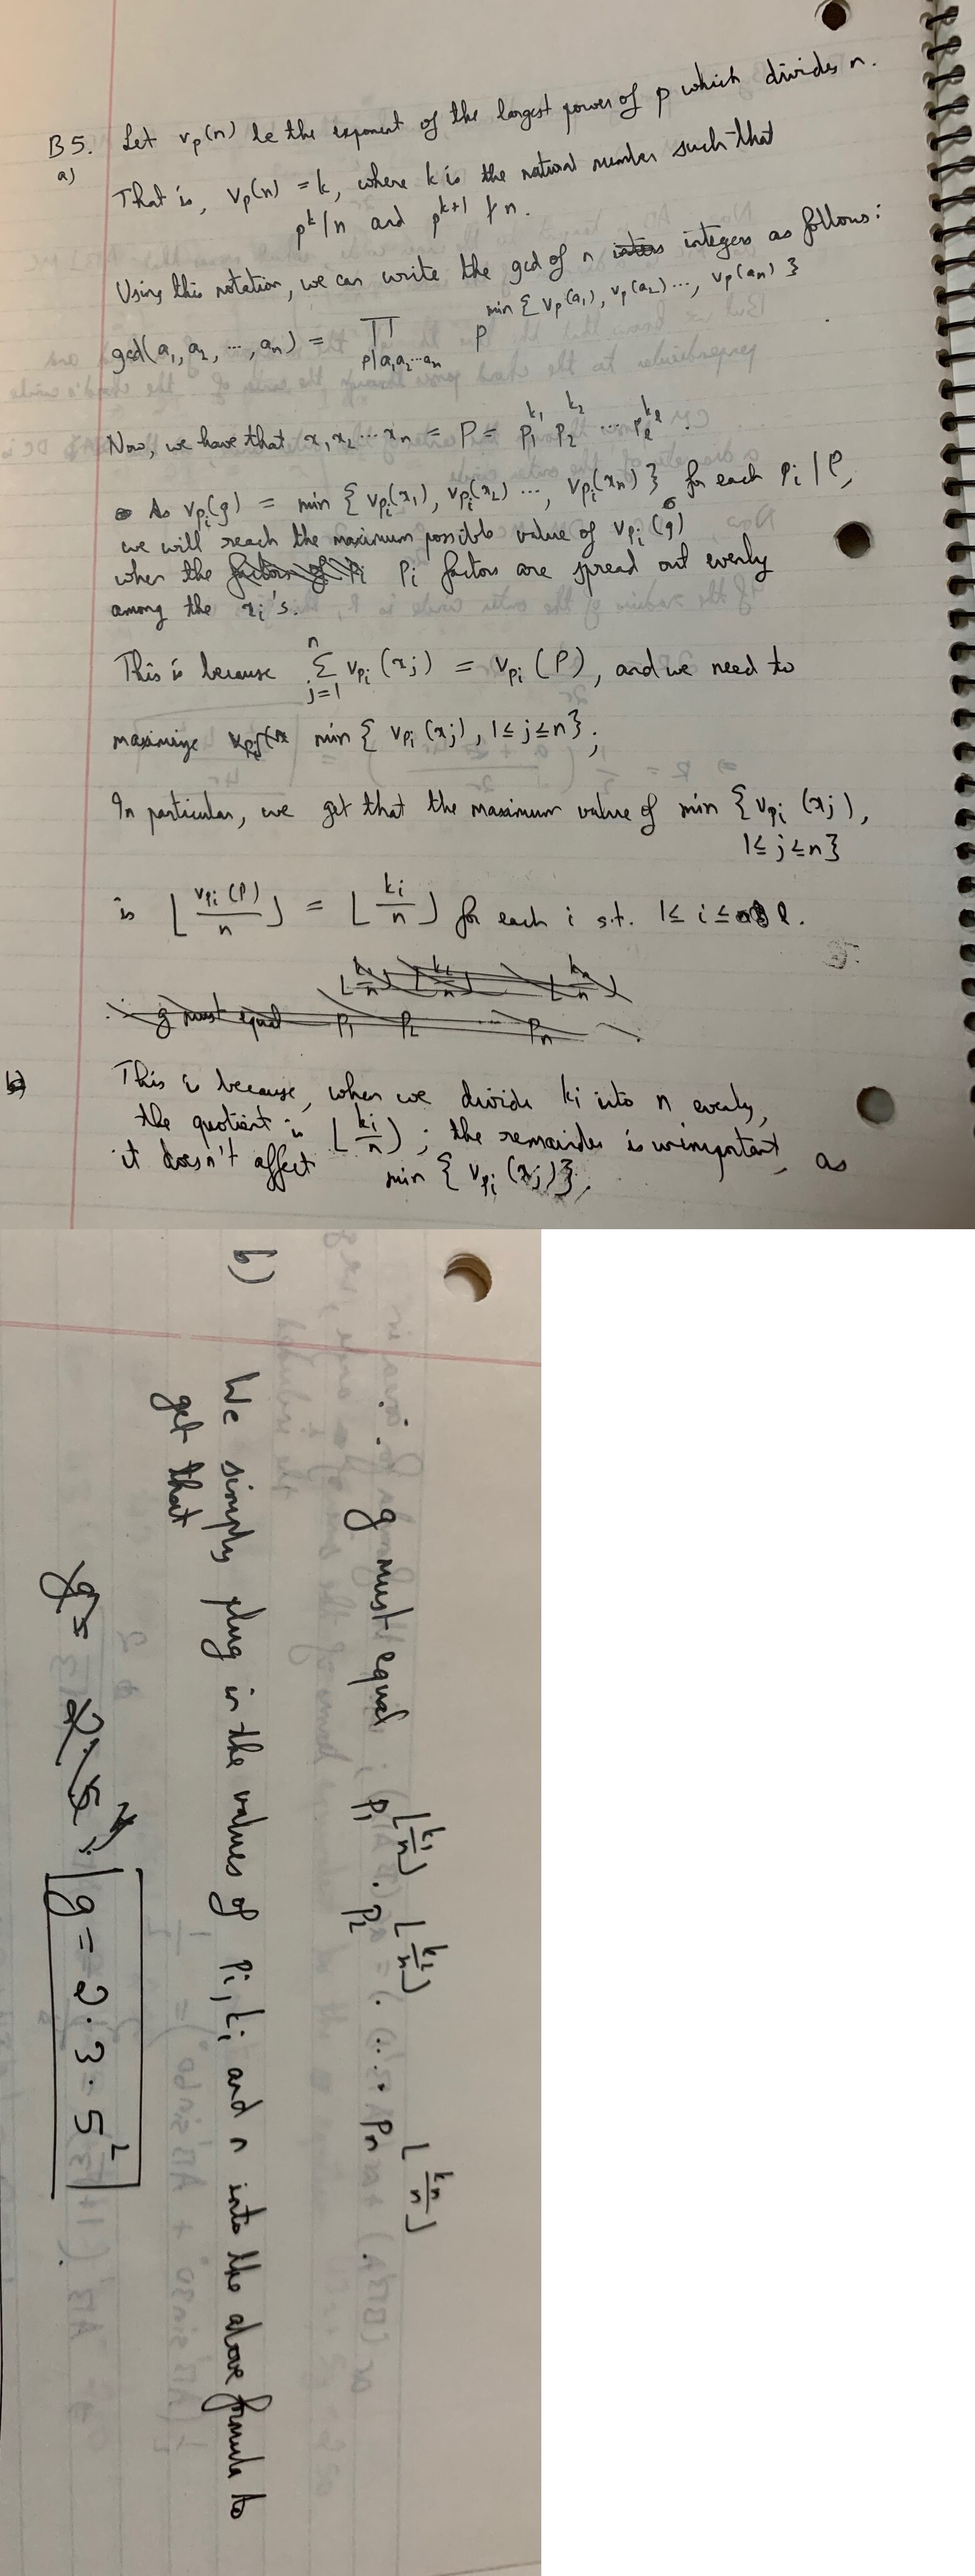 B5. Let vₚ(n) be the exponent of the largest power of p which divides n.
a)
That is, vₚ(n) = k, where k is the natural number such that
pᵏ | n and pᵏ⁺¹ ∤ n.
Using this notation, we can write the gcd of n integers as follows:
gcd(a₁, a₂, ..., aₙ) = ∏_{p|a₁a₂...aₙ} p^{min {vₚ(a₁), vₚ(a₂)..., vₚ(aₙ)}}
Now, we have that x₁x₂...xₙ = P = p₁^{k₁} p₂^{k₂} ... p_ℓ^{k_ℓ}.
As v_{pᵢ}(g) = min {v_{pᵢ}(x₁), v_{pᵢ}(x₂)..., v_{pᵢ}(xₙ)} for each pᵢ | P,
we will reach the maximum possible value of v_{pᵢ}(g)
when the factors of pᵢ pᵢ factors are spread out evenly
among the xᵢ's.
This is because ∑_{j=1}^{n} v_{pᵢ}(xⱼ) = v_{pᵢ}(P), and we need to
maximize min {v_{pᵢ}(xⱼ), 1≤j≤n};
In particular, we get that the maximum value of min {v_{pᵢ}(xⱼ),
1≤j≤n}
is ⌊v_{pᵢ}(P)/n⌋ = ⌊kᵢ/n⌋ for each i s.t. 1≤i≤ℓ.
∴ g must equal p₁^{⌊k₁/n⌋} p₂^{⌊k₂/n⌋} ... pₙ^{⌊kₙ/n⌋}.
b)
This is because, when we divide kᵢ into n evenly,
the quotient is ⌊kᵢ/n⌋; the remainder is unimportant, as
it doesn't affect min {v_{pᵢ}(xⱼ)}.
∴ g must equal p₁^{⌊k₁/n⌋} · p₂^{⌊k₂/n⌋} · ... · pₙ^{⌊kₙ/n⌋}
b) We simply plug in the values of pᵢ, kᵢ and n into the above formula to
get that
g = 2·5 g = 2·3·5²